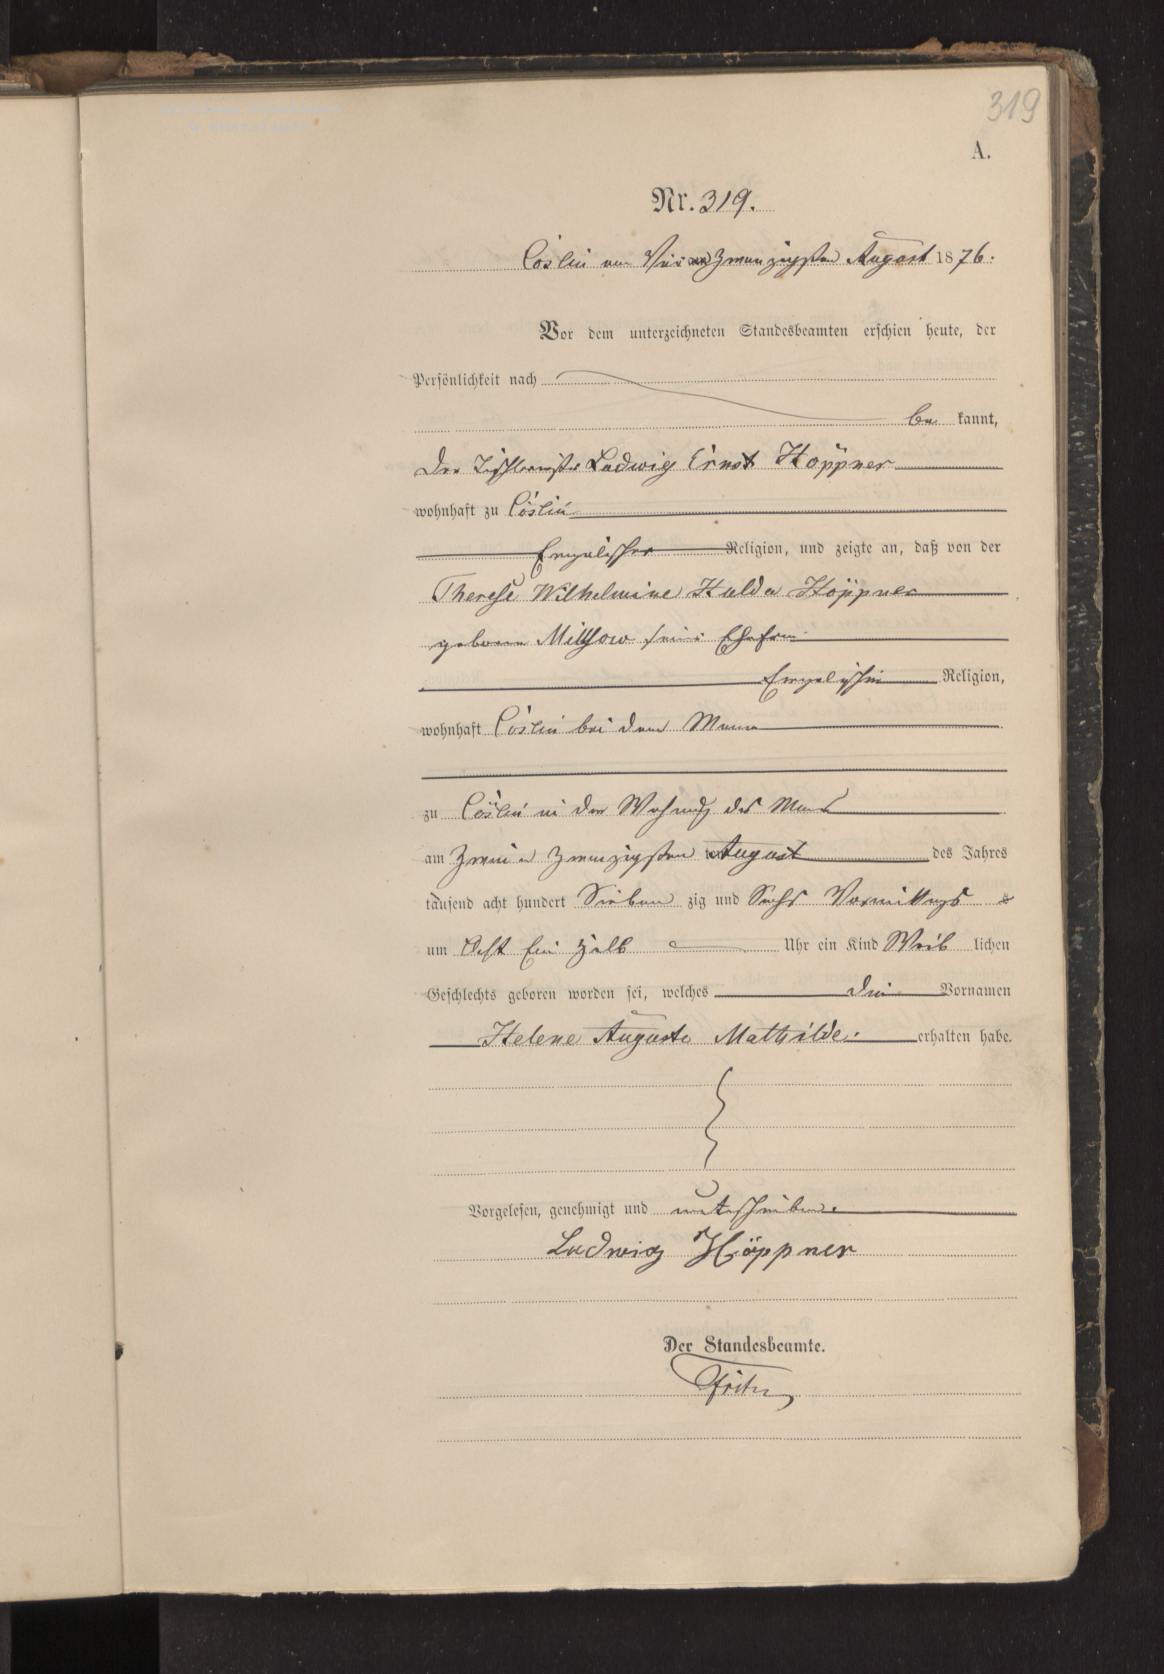 319
A.
Nr. 319.
Cöslin am Vier und zwanzigsten August 1876.
Vor dem unterzeichneten Standesbeamten erschien heute, der
Persönlichkeit nach
be kannt,
der Tischlermeister Ludwig Ernst Höppner
wohnhaft zu Cöslin
Evangelischer Religion, und zeigte an, daß von der
Therese Wilhelmine Hulda Höppner
geborene seine Ehefrau
Evangelischen Religion,
wohnhaft Cöslin bei dem Manne
zu Cöslin in der Wohnung des Mannes
am Zwei u zwanzigsten August des Jahres
tausend acht hundert Sieben zig und Sechs Vormittags
um Acht Ein halb Uhr ein Kind Weib lichen
Geschlechts geboren worden sei, welches die Vornamen
Helene Auguste Mathilde. erhalten habe.
Vorgelesen, genehmigt und unterschrieben.
Ludwig Höppner
Der Standesbeamte.